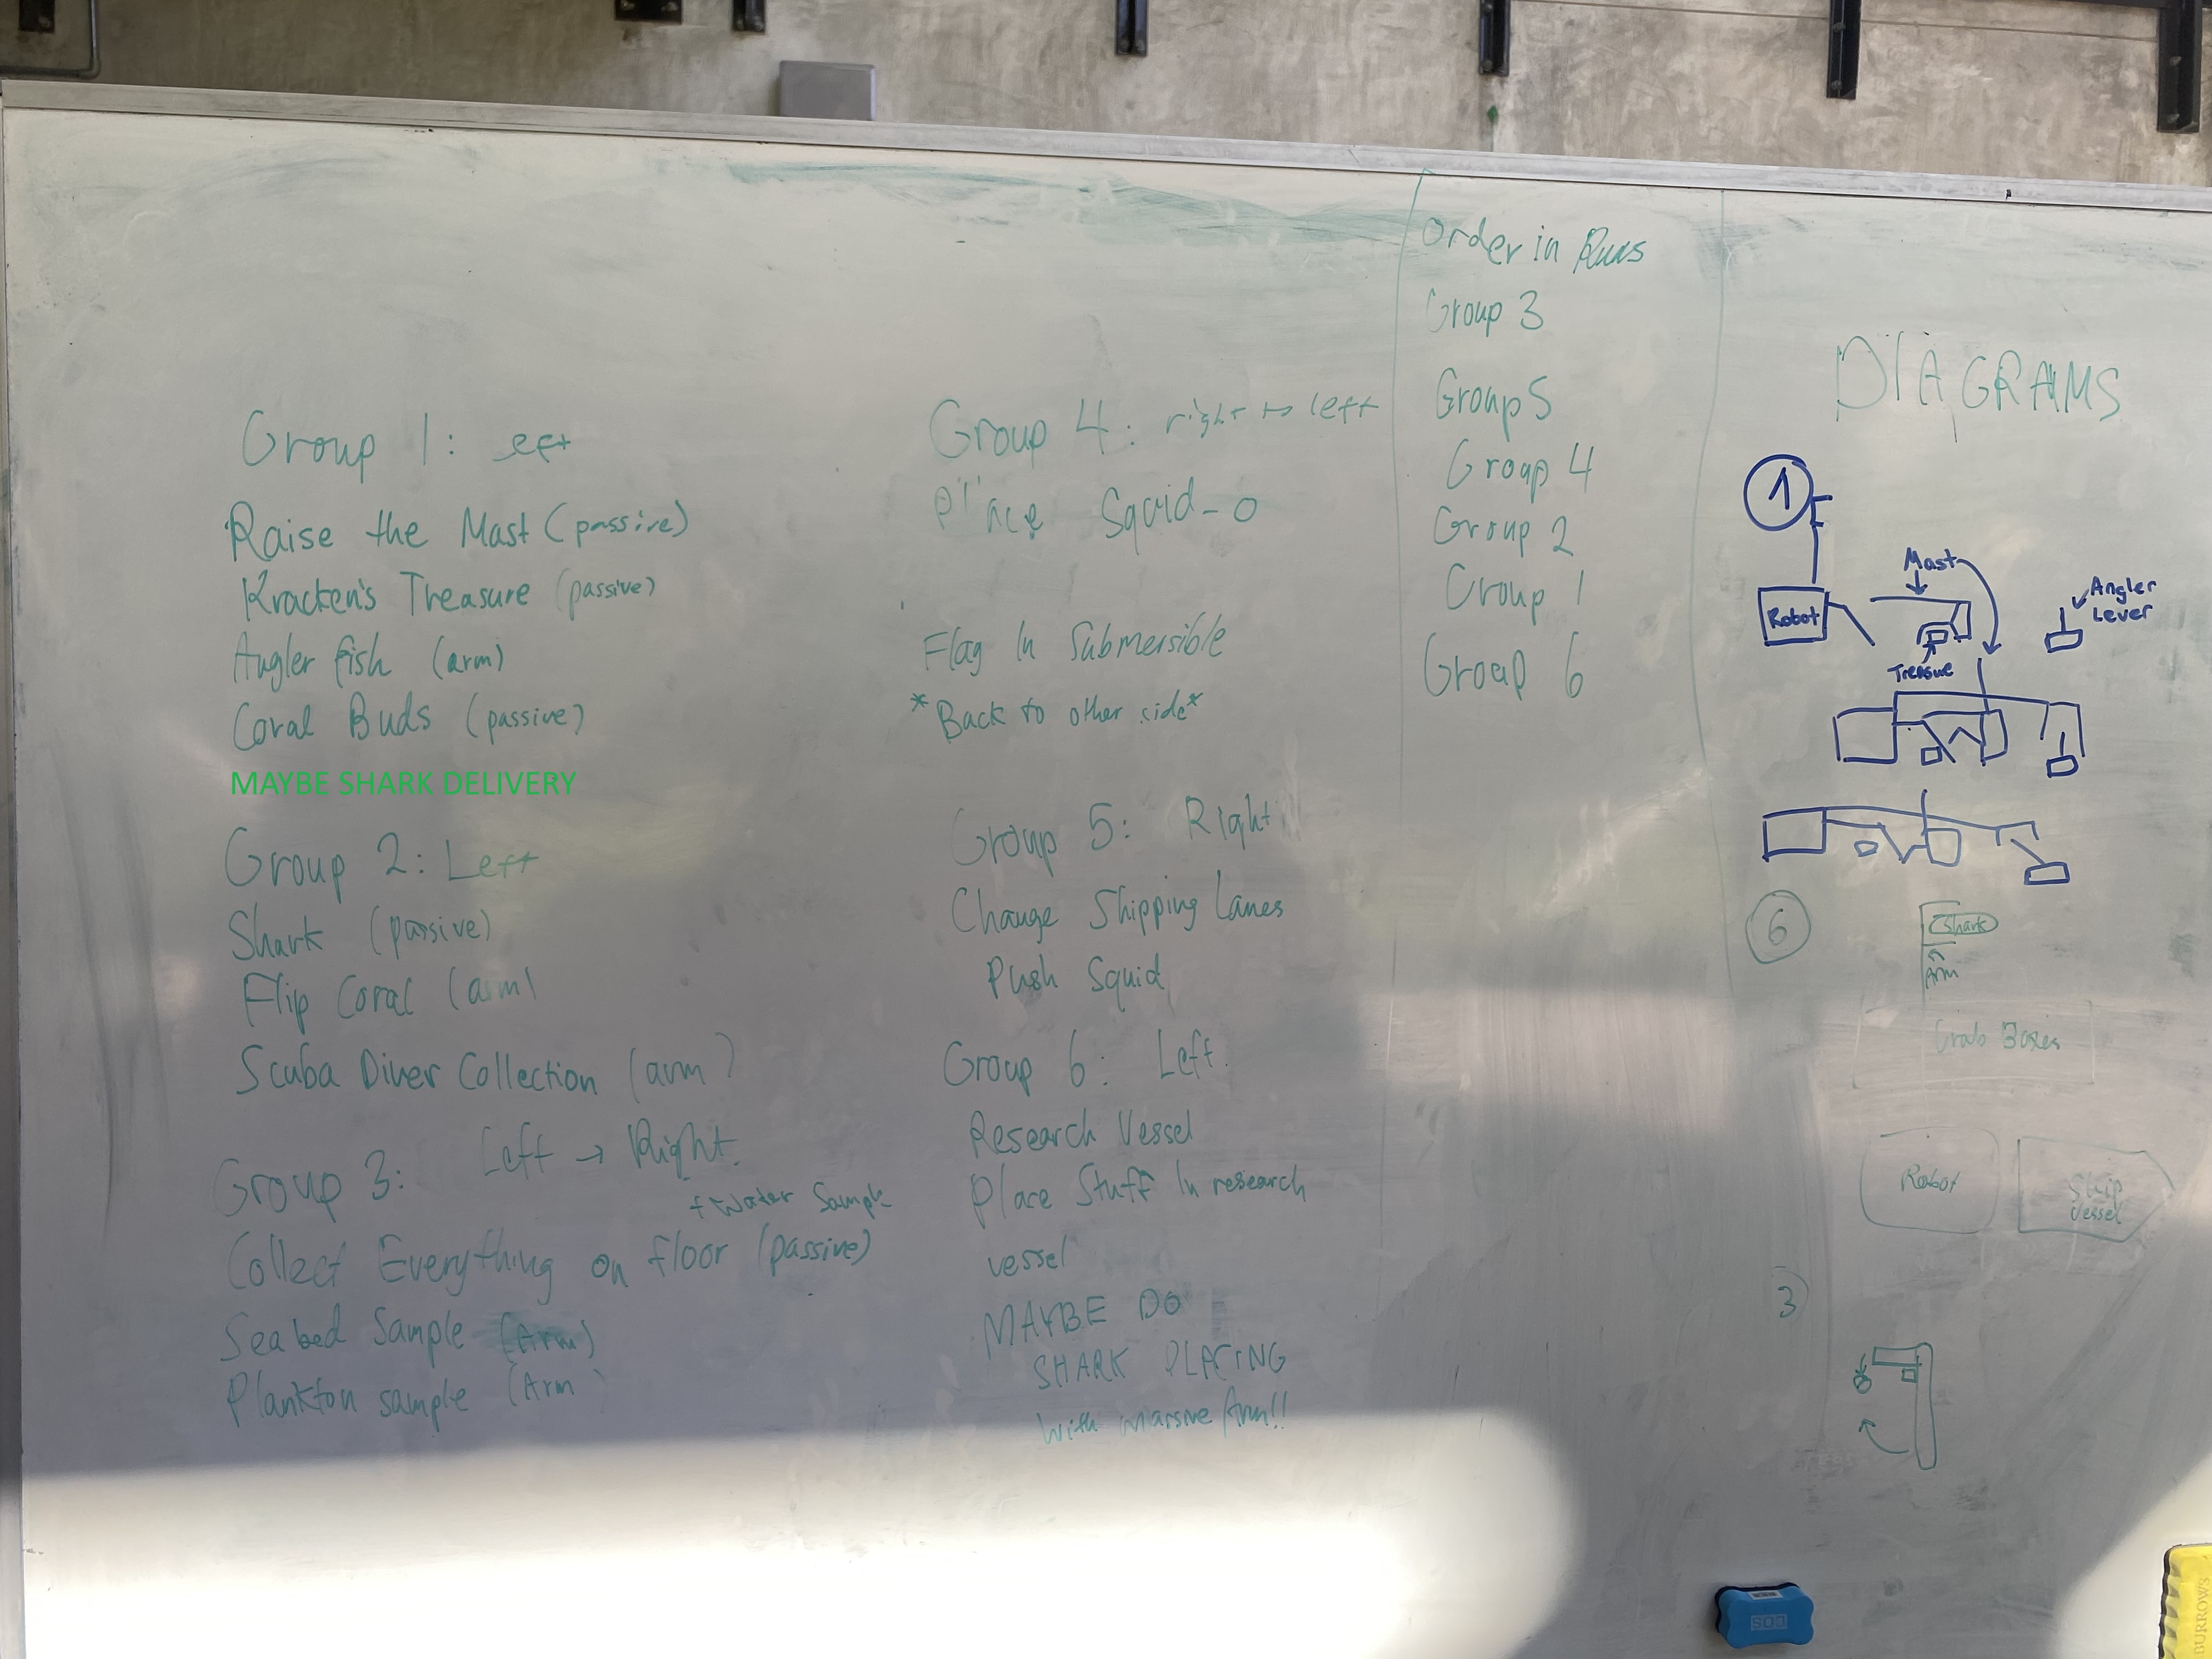 Group 1: left
Raise the Mast (passive)
Kracken's Treasure (passive)
Angler fish (arm)
Coral Buds (passive)
MAYBE SHARK DELIVERY
Group 2: Left
Shark (passive)
Flip Coral (arm)
Scuba Diver Collection (arm)
Group 3: Left → Right.
+ Water Sample
Collect Everything on floor (passive)
Seabed Sample (Arm)
Plankton sample (Arm)
Group 4: right to left
Place Squid
Flag In Submersible
*Back to other side*
Group 5: Right
Change Shipping Lanes
Push Squid
Group 6: Left.
Research Vessel
Place Stuff In research
vessel
MAYBE DO
SHARK PLACING
with massive Arm!!
Order in Runs
Group 3
Group 5
Group 4
Group 2
Group 1
Group 6
DIAGRAMS
1
Mast
Angler
Lever
Robot
Treasure
6
Shark
Arm
Grab Boxes
Robot
Ship
Vessel
3
SQ3
BURROWS